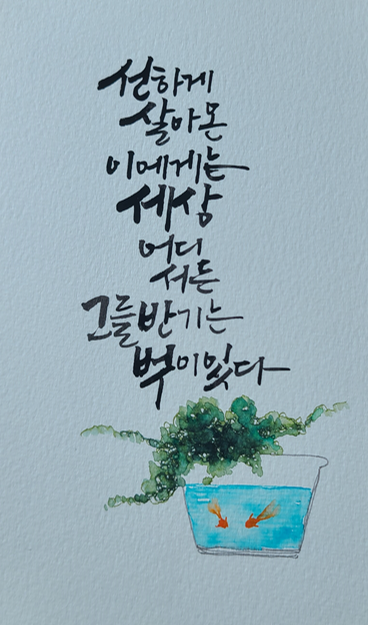 선하게
살아온
이에게는
세상
어디
서든
그를 반기는
벗이 있다